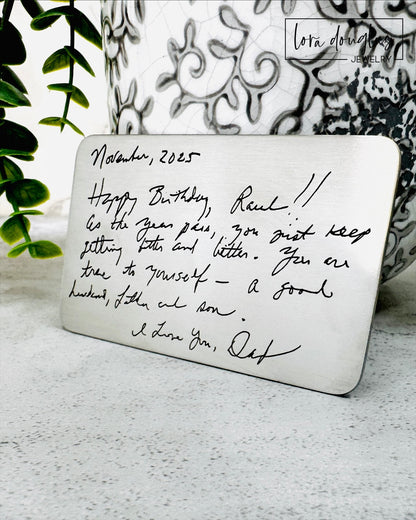 lora douglas
JEWELRY
November, 2025
Happy Birthday, Raul!!
As the years pass, you just keep
getting better and better. You are
true to yourself – a good
husband, father and son.
I Love You, Dad